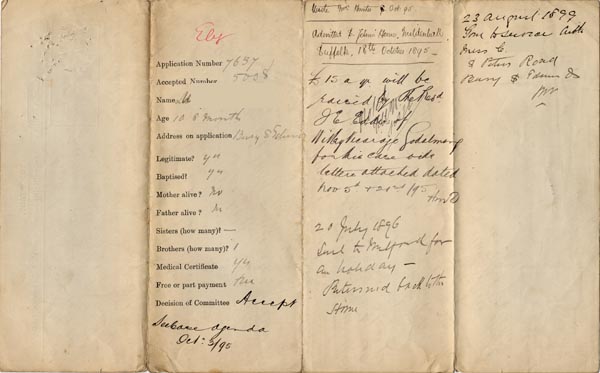 Ely
Application Number 7637
Accepted Number 5008
Name
Age 10 8 month
Address on application Bury S Edm
Legitimate? yes
Baptised? yes
Mother alive? No
Father alive? N
Sisters (how many)? —
Brothers (how many)? 1
Medical Certificate yes
Free or part payment Free
Decision of Committee Accept
See Case agenda
Oct: 3/95
Write Mrs 8 Oct 95
Admitted St John's Home, Mildenhall
Suffolk, 18th October 1895 —
£15 a yr will be
raised by The Revd
J E of
Witley Vicarage Godalming
for his care vide
letters attached dated
Nov 5th & 22nd /95
20 July 1896
Sent to Milford for
an holiday —
Returned back to the
Home
23 August 1899
Gone to Service with
Miss C.
8 Petus Road
Bury St Edmunds